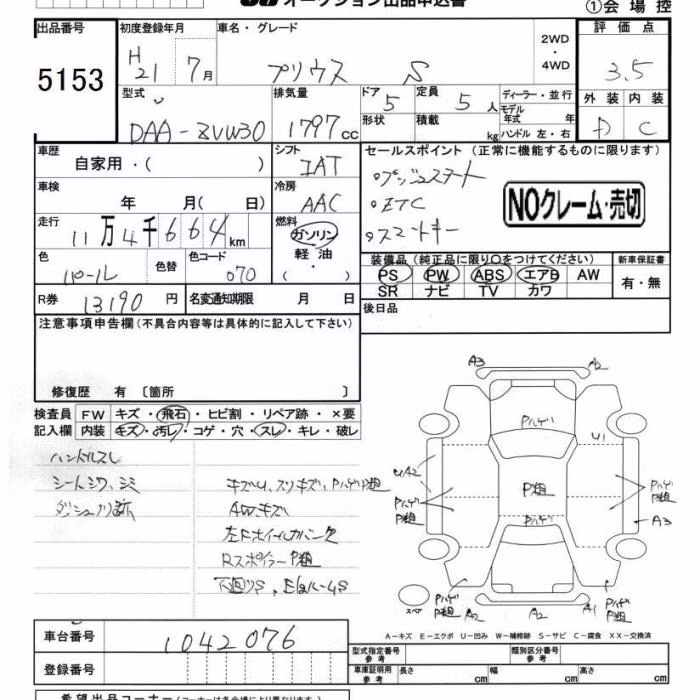 オークション出品申込書
①会場控
出品番号 5153
初度登録年月 H21 7月
車名・グレード プリウス S
2WD・4WD
評価点 3.5
外装 内装
D C
型式 DAA-ZVW30
排気量 1797cc
ドア 5
形状
定員 5人
積載 kg
ディーラー・並行
モデル年式 年
ハンドル 左・右
車歴 自家用・( )
シフト IAT
セールスポイント (正常に機能するものに限ります)
・プッシュスタート
・ETC
・スマートキー
NOクレーム・売切
車検 年 月( 日)
冷房 AAC
走行 11万4千664km
燃料 ガソリン・軽油・( )
色 パール 色替
色コード 070
装備品 (純正品に限り〇をつけてください)
PS PW ABS エアB AW
SR ナビ TV カワ
新車保証書 有・無
R券 13190円
名変通知期限 月 日
後日品
注意事項申告欄 (不具合内容等は具体的に記入して下さい)
修復歴 有 〔箇所 〕
検査員記入欄
FW キズ・飛石・ヒビ割・リペア跡・×要
内装 キズ・汚レ・コゲ・穴・スレ・キレ・破レ
ハンドルスレ
シートシワ、シミ
ダッシュノリ跡
キズU、スリキズ、Pハゲ P粗
AWキズ
左Fホイルカバー欠
Rスポイラー P粗
下回りS
A3
A2
Pハゲ
U1
UA2
Pハゲ
P粗
P粗
Pハゲ
Pハゲ
P粗
A3
スペア
Pハゲ
P粗
A2
A2
A1
Pハゲ
P粗
A-キズ E-エクボ U-凹み W-補修跡 S-サビ C-腐食 XX-交換済
車台番号 1042076
登録番号
型式指定番号 参考
類別区分番号 参考
車庫証明用 参考 長さ cm 幅 cm 高さ cm
希望出品コーナー